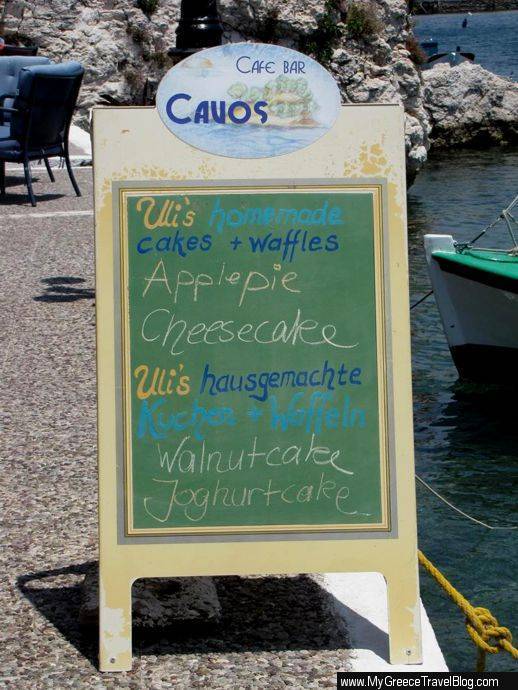 CAFE BAR
CAVOS
Uli's homemade
cakes + waffles
Applepie
Cheesecake
Uli's hausgemachte
Kuchen + Waffeln
Walnutcake
Joghurtcake
www.MyGreeceTravelBlog.com